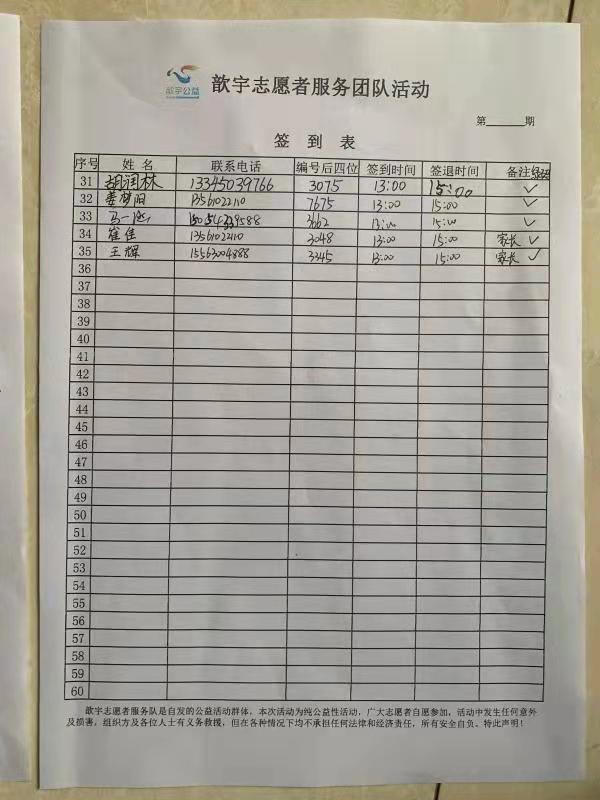 歆宇公益
歆宇志愿者服务团队活动
第______期
签 到 表
序号 姓 名 联系电话 编号后四位 签到时间 签退时间 备注
31 胡润林 13345039766 3075 13:00 15:00 ✓
32 姜梦阳 13561022110 7675 13:00 15:00 ✓
33 马一 3662 13:00 15:00 ✓
34 崔佳 13561022110 3048 13:00 15:00 家长 ✓
35 王辉 15563004888 3345 13:00 15:00 家长 ✓
36
37
38
39
40
41
42
43
44
45
46
47
48
49
50
51
52
53
54
55
56
57
58
59
60
歆宇志愿者服务队是自发的公益活动群体，本次活动为纯公益性活动，广大志愿者自愿参加，活动中发生任何意外
及损害，组织方及各位人士有义务救援，但在各种情况下均不承担任何法律和经济责任，所有安全自负。特此声明！